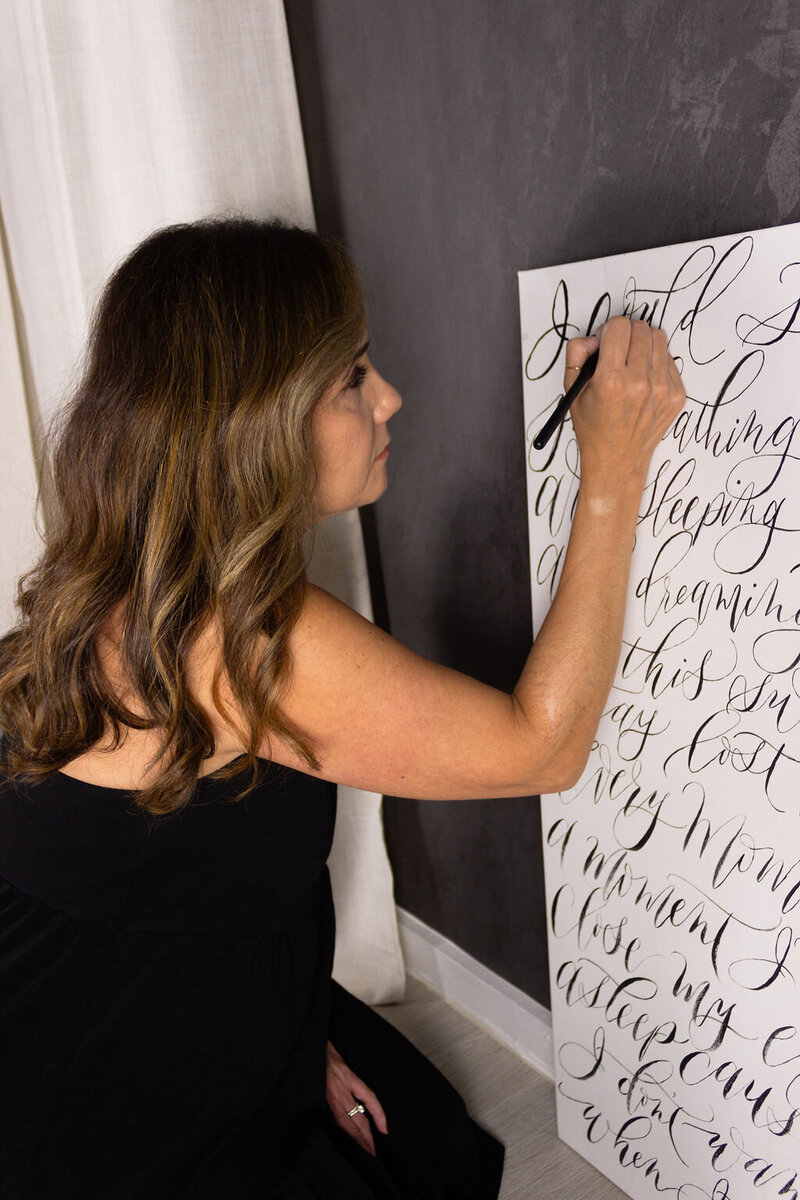 I could
athing
sleeping
dreaming
this su
ay lost
every Mom
a moment I
close my e
asleep caus
I don't wan
when